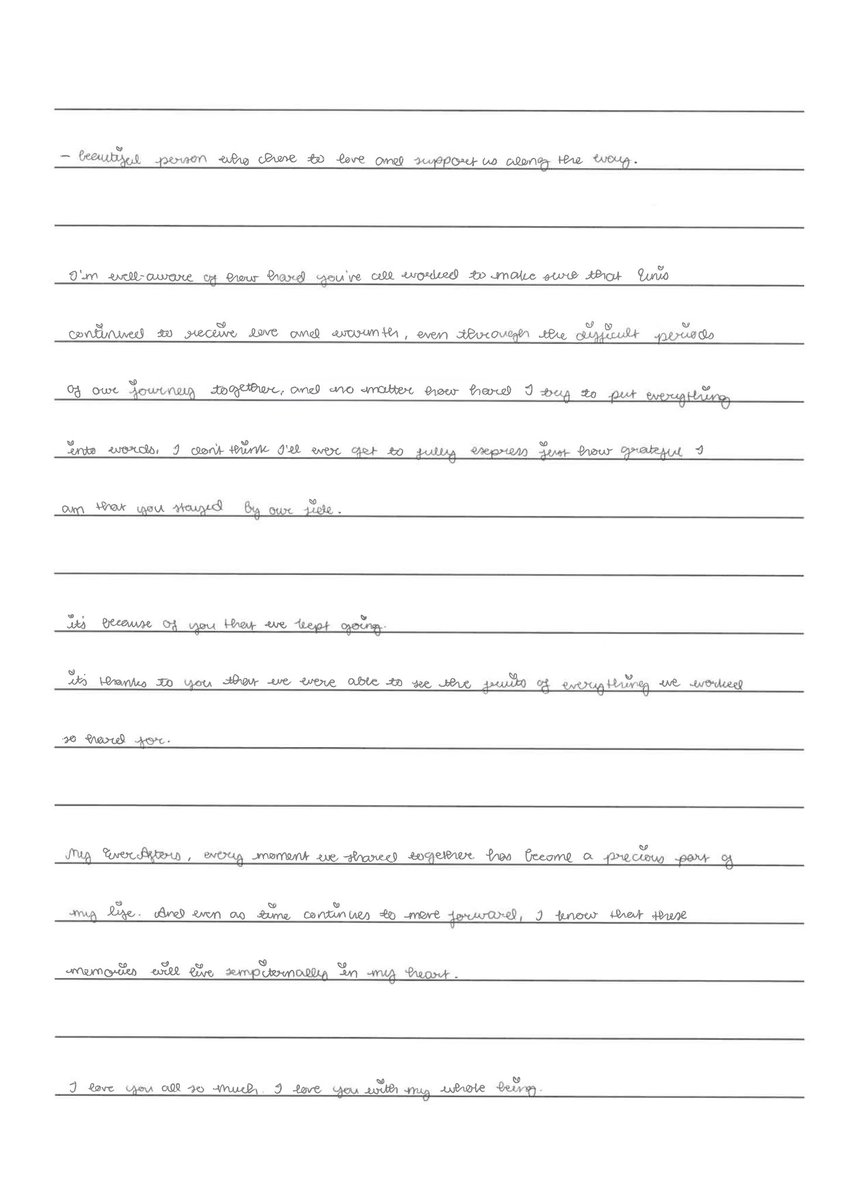 - beautiful person who chose to love and support us along the way.
I'm well-aware of how hard you've all worked to make sure that Unis
continued to receive love and warmth, even through the difficult periods
of our journey together, and no matter how hard I try to put everything
into words, I don't think I'll ever get to fully express just how grateful I
am that you stayed by our side.
it's because of you that we kept going.
it's thanks to you that we were able to see the fruits of everything we worked
so hard for.
My EverAfters, every moment we shared together has become a precious part of
my life. And even as time continues to move forward, I know that these
memories will live sempiternally in my heart.
I love you all so much. I love you with my whole being.